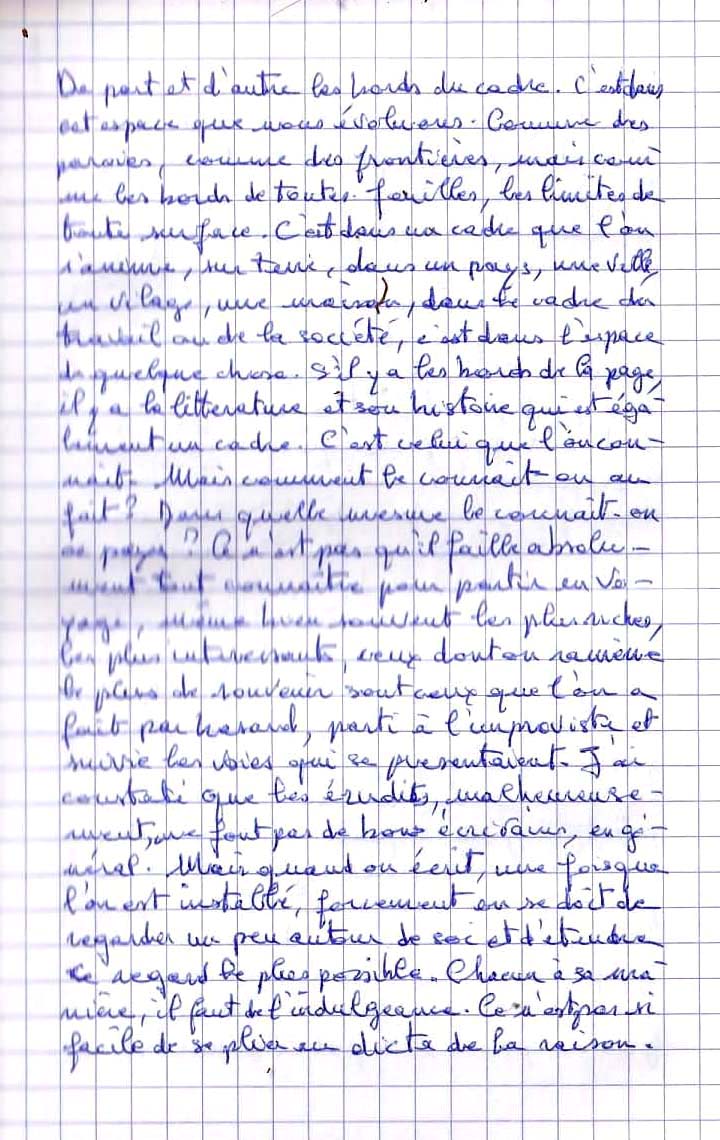 De part et d'autre les bords du cadre. C'est dans
cet espace que nous évoluons. Comme des
parois, comme des frontières, mais com
me les bords de toutes feuilles, les limites de
toute surface. C'est dans un cadre que l'on
s'anime, sur terre, dans un pays, une ville,
un village, une maison, dans le cadre du
travail ou de la société, c'est dans l'espace
de quelque chose. S'il y a les bords de la page,
il y a la litterature et son histoire qui est éga-
lement un cadre. C'est celui que l'on con-
nait. Mais comment le connait-on au
fait? Dans quelle mesure le connaît-on
ce pays? Ce n'est pas qu'il faille absolu-
ment tout connaître pour partir en vo-
yage, même bien souvent les plus riches,
les plus interessants, ceux dont on ramène
le plus de souvenir sont ceux que l'on a
fait par hasard, parti à l'improviste et
suivie les voies qui se presentaient. J'ai
constaté que les érudits, malheureuse-
ment, ne font pas de bons écrivains, en gé-
néral. Mais quand on écrit, une fois que
l'on est installé, forcement on se doit de
regarder un peu autour de soi et d'etendre
ce regard le plus possible. Chacun à sa ma
nière, il faut de l'indulgeance. Ce n'est pas si
facile de se plier au dicta de la raison.